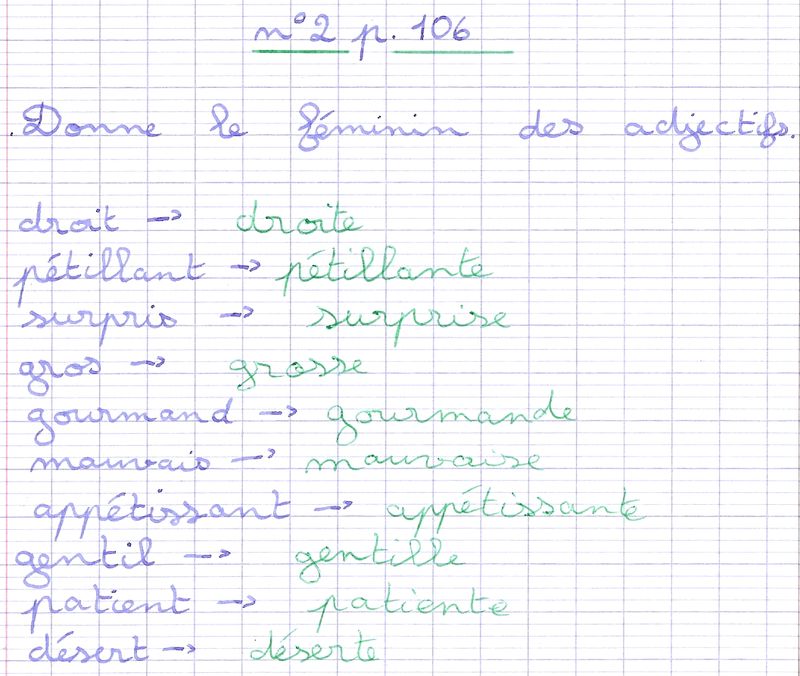 n°2 p. 106
. Donne le féminin des adjectifs.
droit → droite
pétillant → pétillante
surpris → surprise
gros → grosse
gourmand → gourmande
mauvais → mauvaise
appétissant → appétissante
gentil → gentille
patient → patiente
désert → déserte